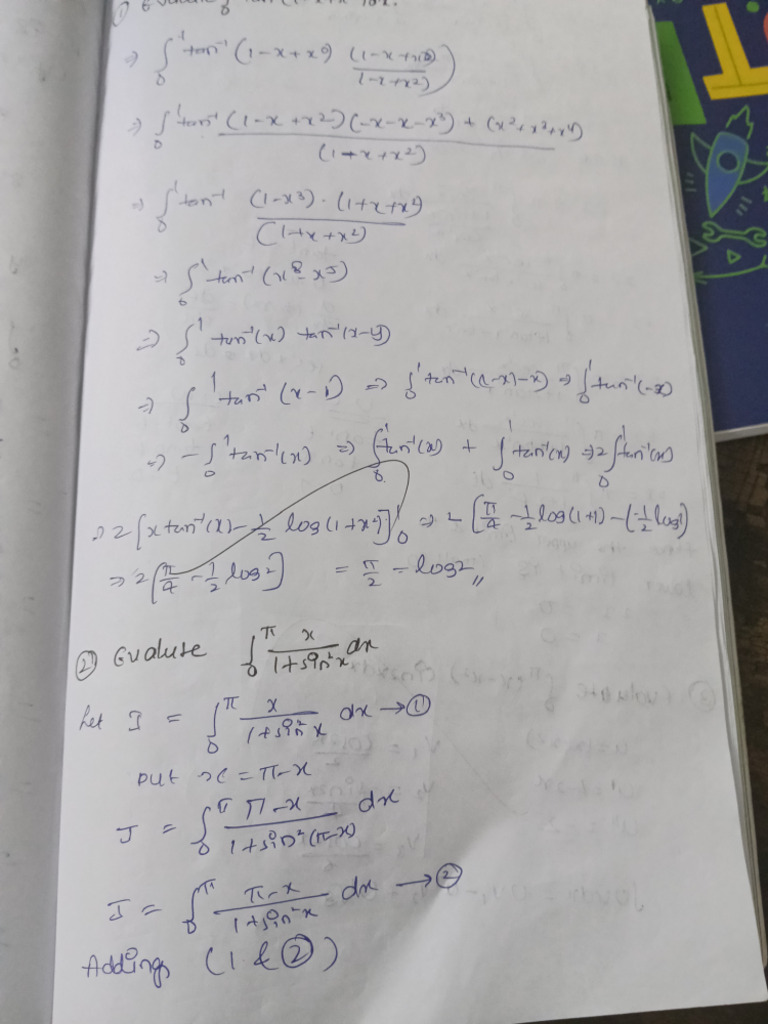 ⇒ ∫₀¹ tan⁻¹ (1-x+x²) (1-x+x²)/(1-x+x²)
⇒ ∫₀¹ tan⁻¹ (1-x+x²)(-x-x-x³) + (x²+x²+x⁴)/(1+x+x²)
⇒ ∫₀¹ tan⁻¹ (1-x³)·(1+x+x²)/(1+x+x²)
⇒ ∫₀¹ tan⁻¹ (x⁸-x⁵)
⇒ ∫₀¹ tan⁻¹(x) tan⁻¹(x-y)
⇒ ∫₀¹ tan⁻¹ (x-1) ⇒ ∫₀¹ tan⁻¹((-x)-x) ⇒ ∫₀¹ tan⁻¹(-x)
⇒ -∫₀¹ tan⁻¹(x) ⇒ ∫₀¹ tan⁻¹(x) + ∫₀¹ tan⁻¹(x) ⇒ 2∫₀¹ tan⁻¹(x)
⇒ 2[x tan⁻¹(x) - 1/2 log(1+x²)]₀¹ ⇒ 2[π/4 - 1/2 log(1+1) - (-1/2 log1)
⇒ 2[π/4 - 1/2 log2] = π/2 - log2,,
② Evalute ∫₀^π x/(1+sin²x) dx
Let I = ∫₀^π x/(1+sin²x) dx → ①
put x = π-x
I = ∫₀^π π-x/(1+sin²(π-x)) dx
I = ∫₀^π π-x/(1+sin²x) dx → ②
Adding (1 & ②)